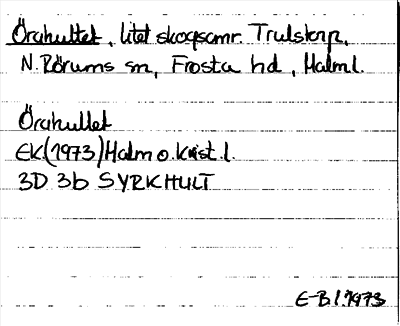 Örahultet, litet skogsomr. Trulstorp,
N. Rörums sn, Frosta hd, Malml.
Örahultet
EK (1973) Malm o. Krist. l.
3D 3b SYRKHULT
E-B l. 1973